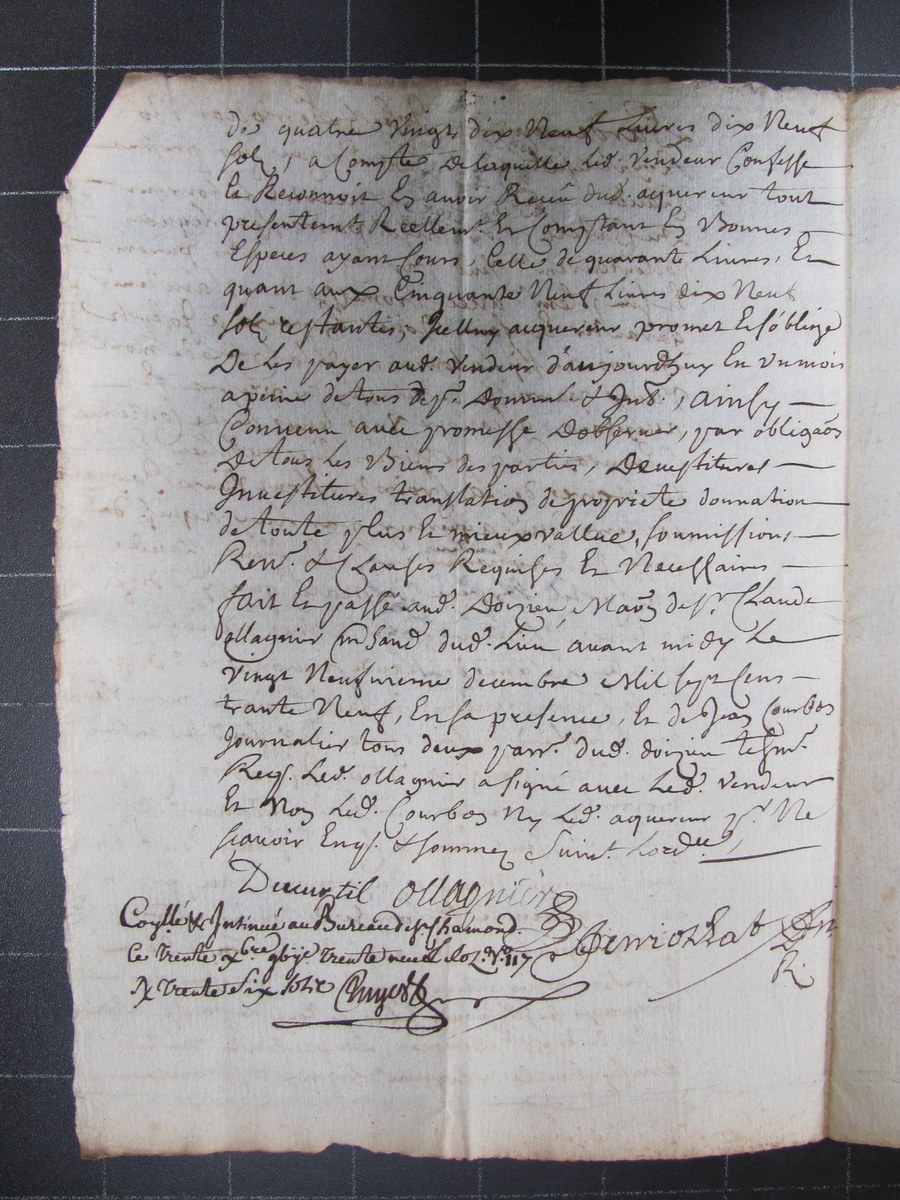 de quatre vingt dix Neuf Livres dix Neuf
solz, a Compte de laquelle Led. vendeur Confesse
Et Reconnoit En avoir Receu dud. aquereur tout
presentemt. Reellemt. Et Comptant En Bonnes
Especes ayant Cours, Celle de quarante Livres, Et
quant aux Cinquante Neuf Livres dix Neuf
solz restantes, Jcelluy aquereur promet Et s'oblige
De Les payer aud. vendeur d'aujourdhuy En un mois
a peine de tous dep. Domm. & Jnt., ainsy
Convenu avec promesse Dobserver, par obligãon
De tous Les Biens des parties, Devestitures
Jnvestitures translation de propriete donnation
de toute plus Et mieux vallue, soumissions
Ren. & Clauses Requises Et Necessaires
fait Et passé aud. Doizieu, Maon. de sr. Claude
ollagnier Mchand dud. Lieu avant midy Le
vingt Neufvieme decembre Mil sept Cens
trante Neuf, En sa presence, Et de Jean Courbon
Journalier tous deux parr. dud. doizieu tesm.
Req. Led. ollagnier a signé avec Led. vendeur
Et Non Led. Courbon Ny Led. aquereur pr. Ne
sçavoir Enq. & sommez Suivt. Lordce.
Ducurtil ollagnier
Conllé & Jnsinué au Bureau de St. Chamond
Ce trente xbre trente neuf fol. Vo. 117
R trente six solz